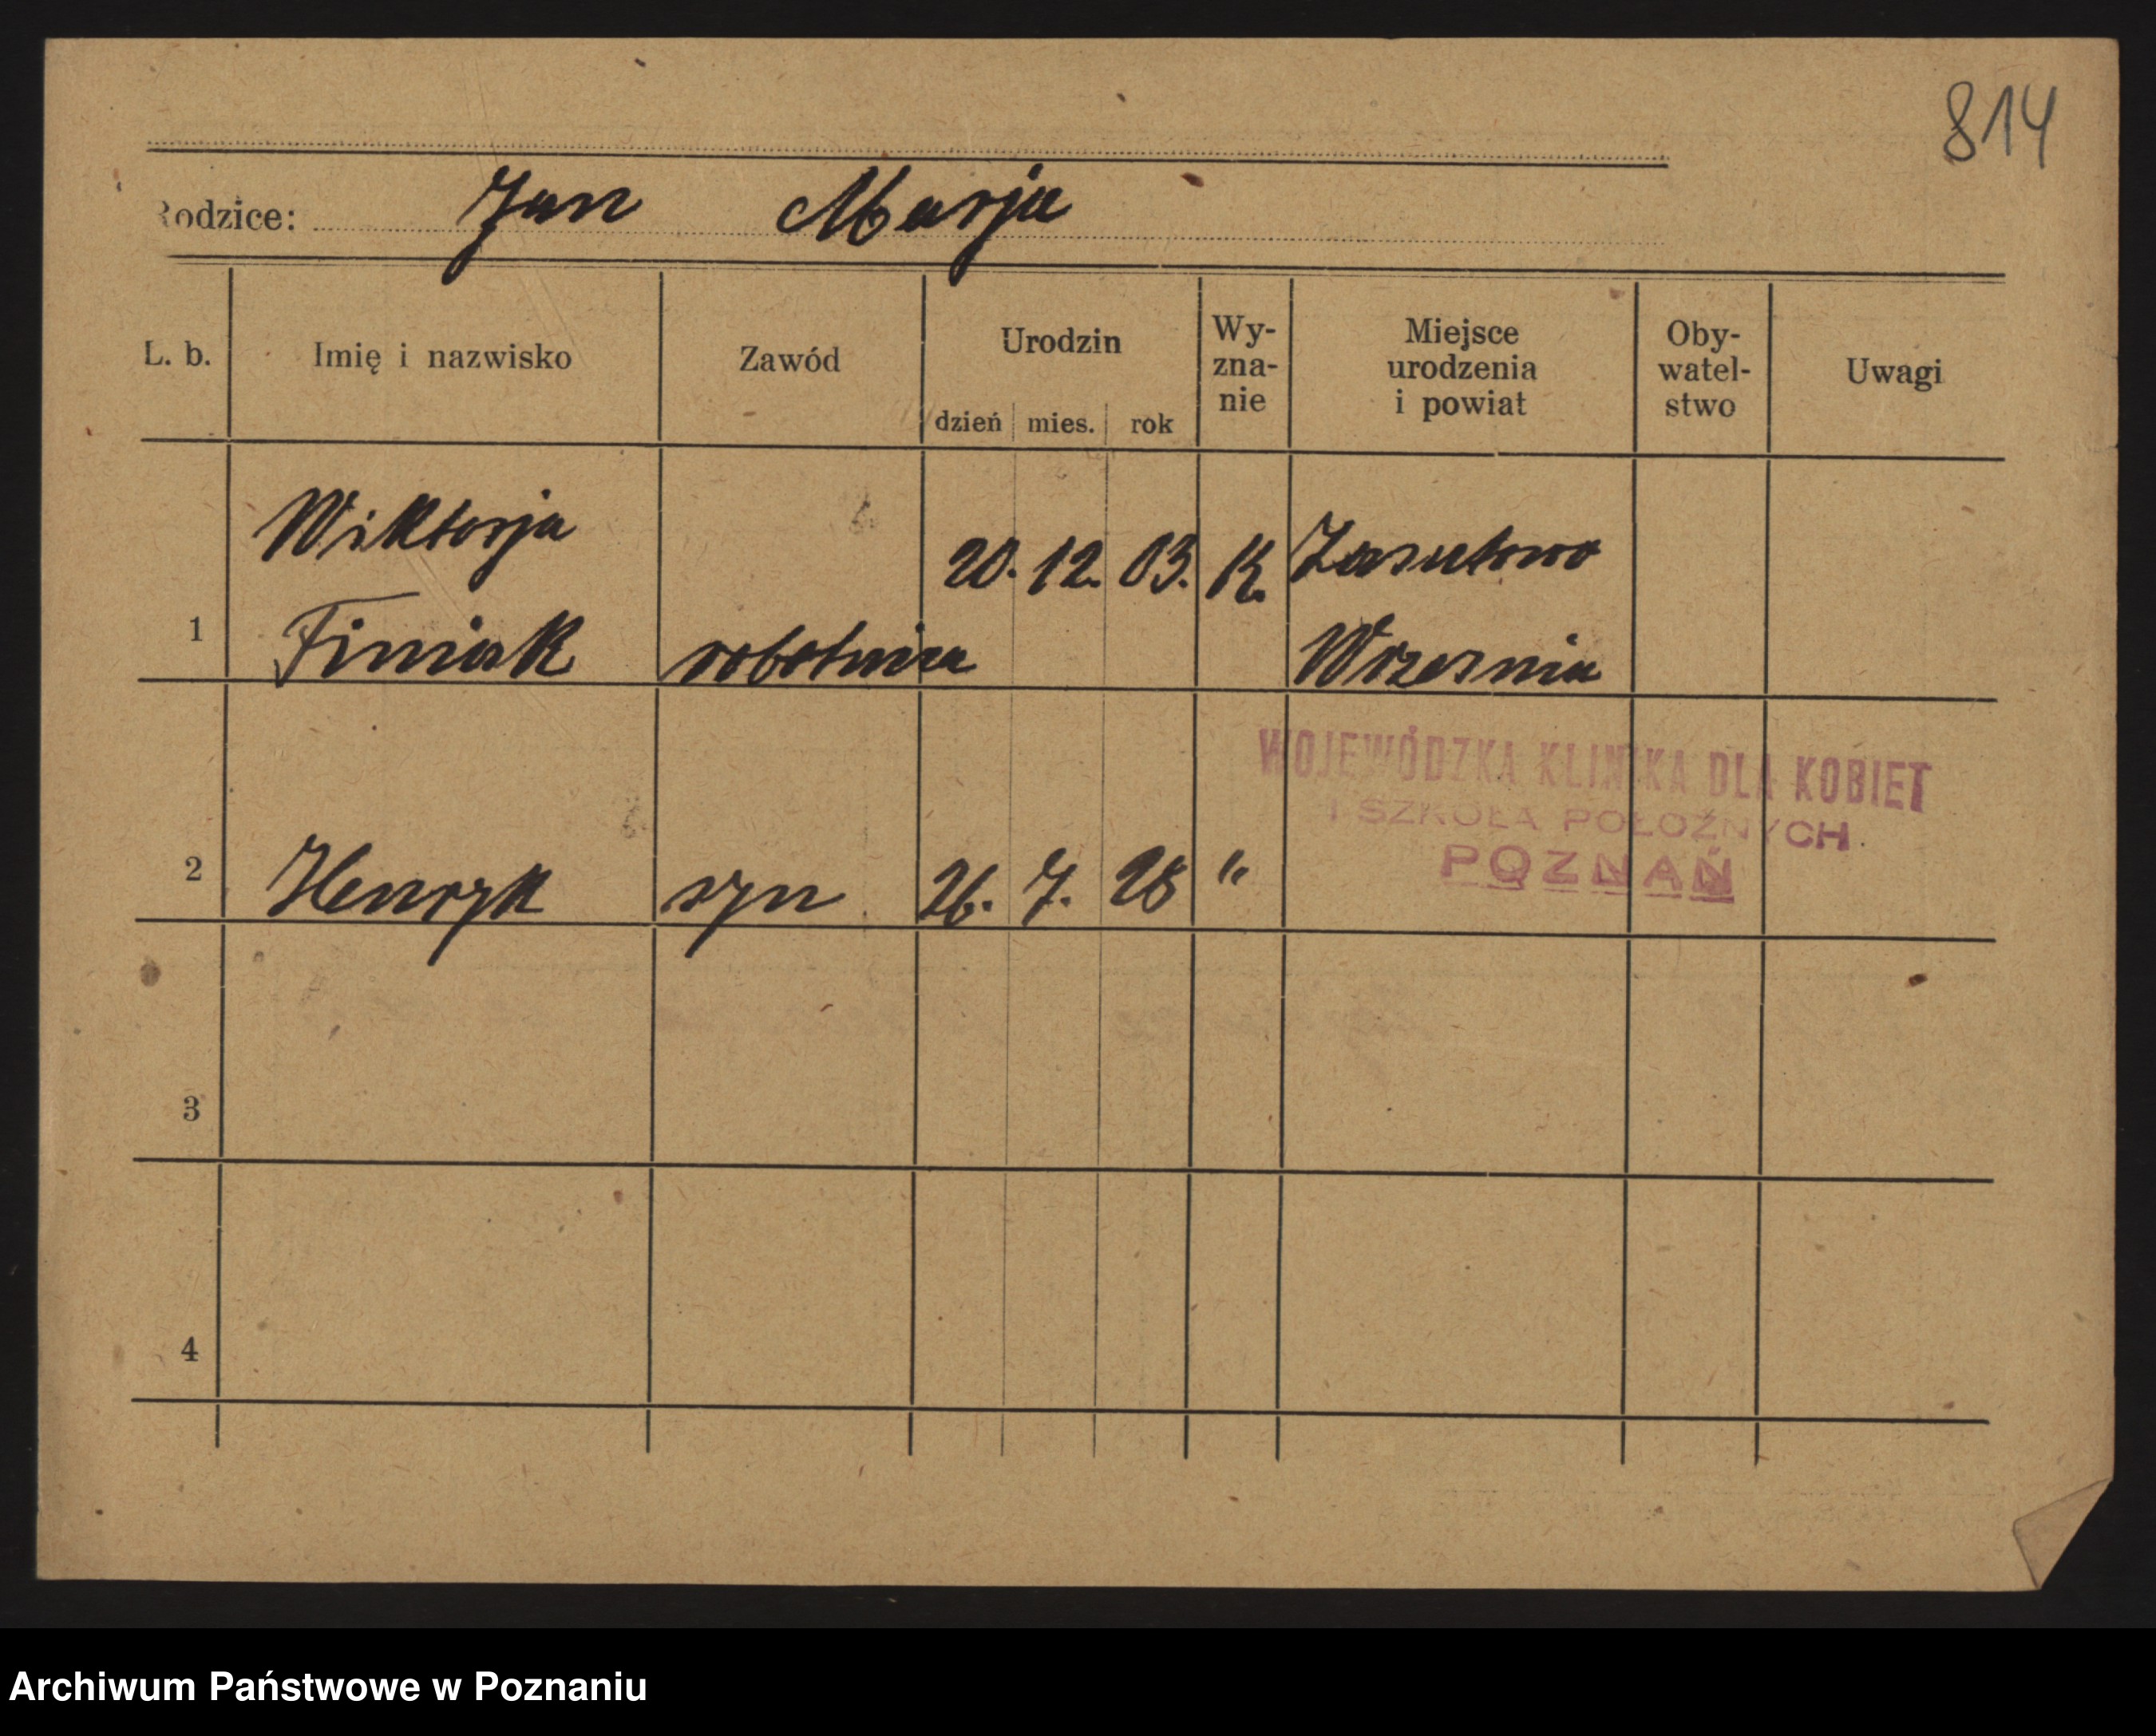 814
Rodzice: Jan Marja
L. b. Imię i nazwisko Zawód Urodzin dzień mies. rok Wy-zna-nie Miejsce urodzenia i powiat Oby-watel-stwo Uwagi
Wiktorja 20. 12. 03. K. Zasutowo
1 Finiak robotnica Wrzesnia
WOJEWÓDZKA KLINIKA DLA KOBIET
I SZKOŁA POŁOŻNYCH.
POZNAŃ
2 Henryk syn 26. 7. 28 "
3
4
Archiwum Państwowe w Poznaniu